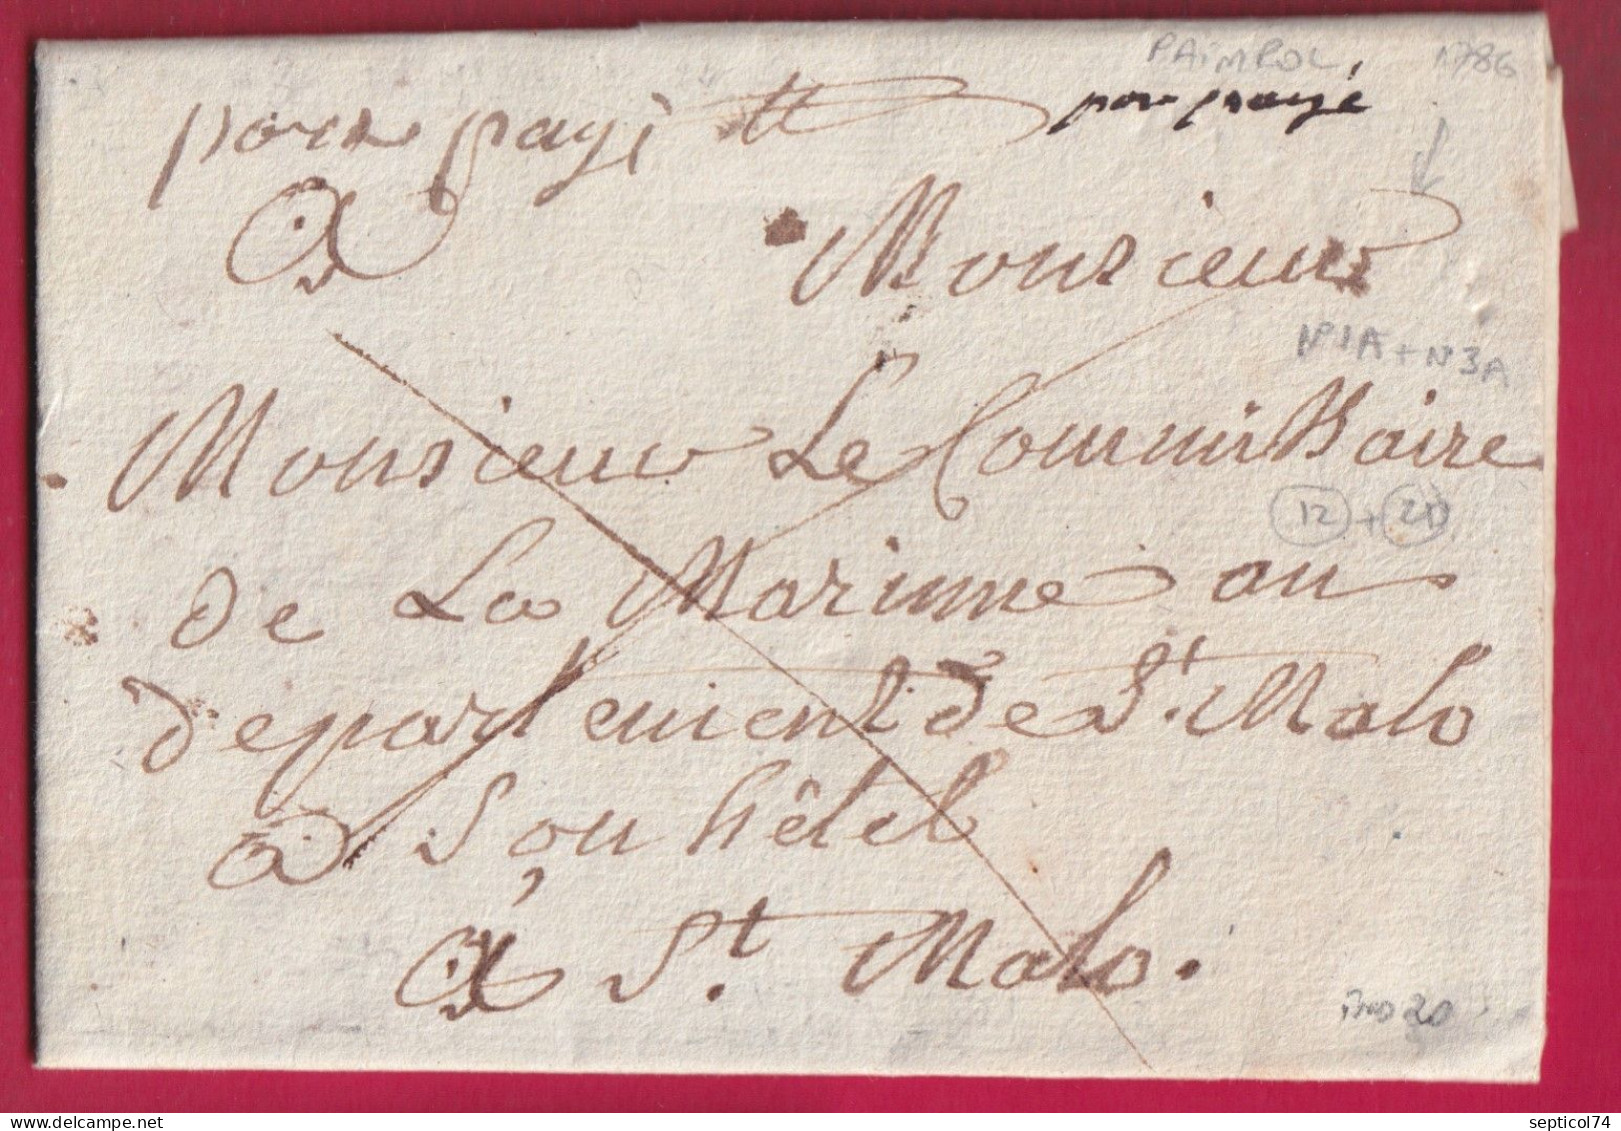 PAIMPOL 1786
port payé port payé
A Monsieur
N°1A + N°3A
Monsieur Le Commissaire
12 + 21
de La Marinne au
département de St. Malo
a Son hôtel
A St. Malo.
ind 20
septicol74